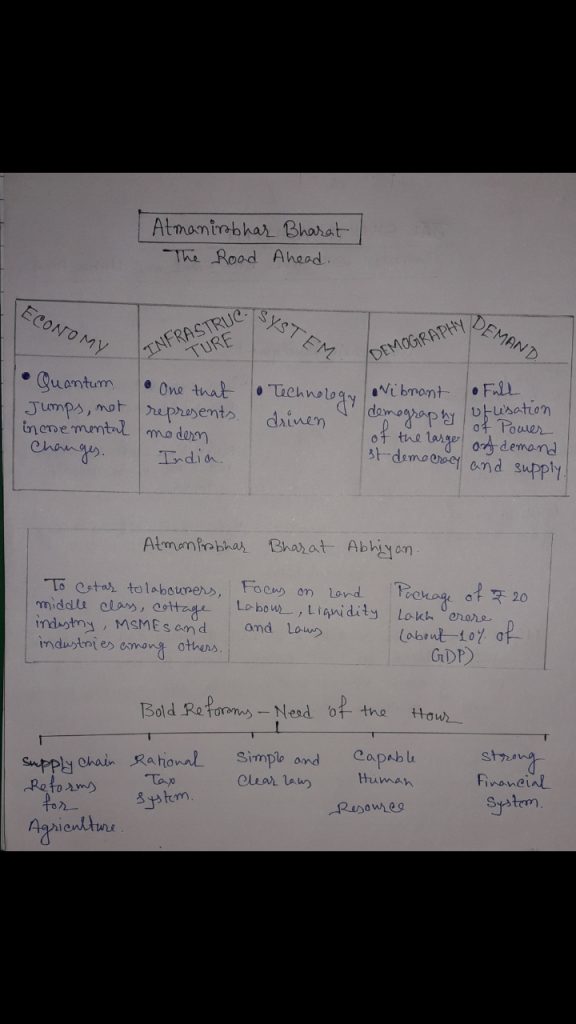 Atmanirbhar Bharat
The Road Ahead.
ECONOMY
INFRASTRUC-
TURE
SYSTEM
DEMOGRAPHY
DEMAND
• Quantum
Jumps, not
incremental
Changes.
• One that
represents
modern
India.
• Technology
driven
• Vibrant
demography
of the large-
st democracy
• Full
utilisation
of Power
of demand
and supply
Atmanirbhar Bharat Abhiyan.
To cater to labourers,
middle class, cottage
industry, MSMEs and
industries among others.
Focus on Land
Labour, Liquidity
and Laws
Package of ₹ 20
Lakh crore
(about 10% of
GDP)
Bold Reforms – Need of the Hour
Supply chain
Reforms
for
Agriculture.
Rational
Tax
System.
Simple and
Clear laws
Capable
Human
Resource
Strong
Financial
System.